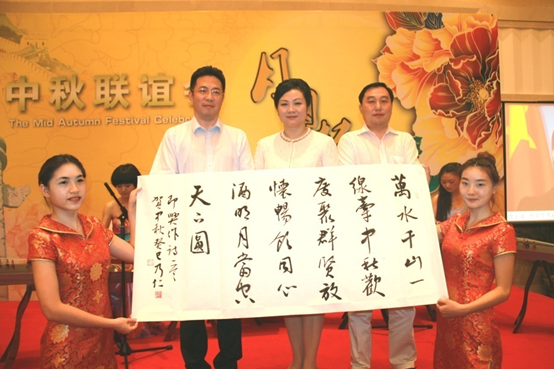 中秋联谊
The Mid Autumn Festival Celeb
月
萬水千山一
線牽中秋歡
度聚群賢放
懷暢飲同心
滿明月當空
天下圓
即興作詩一首
賀中秋癸巳乃仁